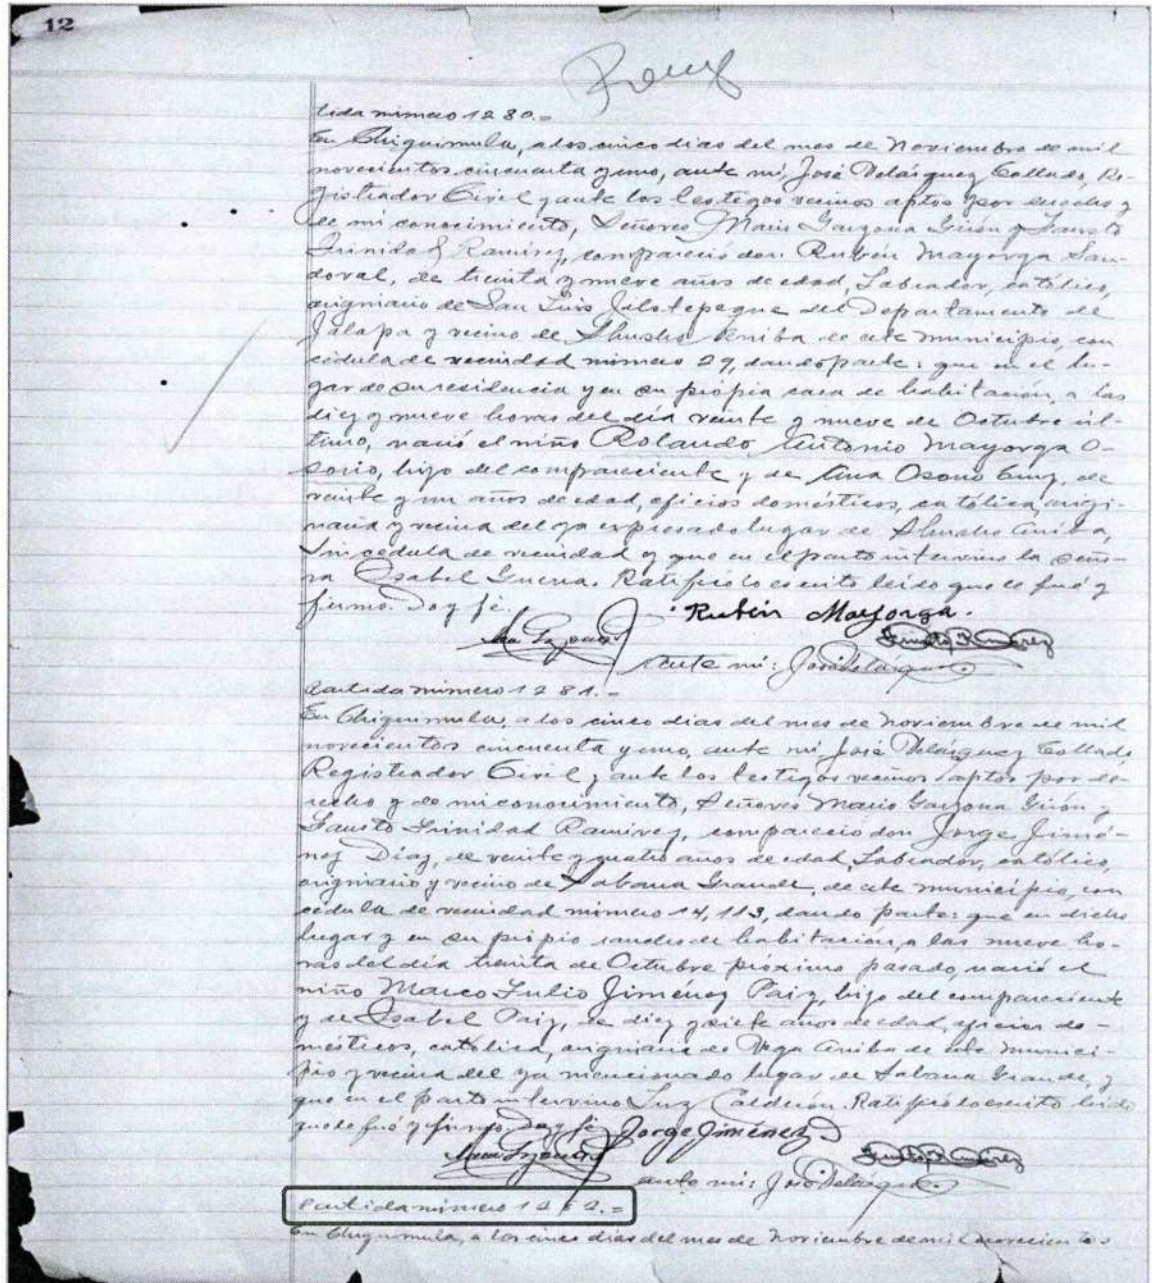 12
tida número 1280.=
En Chiquimula, a los cinco dias del mes de Noviembre de mil
novecientos cincuenta y uno, ante mí, José Velásquez Collado, Re-
gistrador Civil y ante los testigos vecinos aptos por derecho y
de mi conocimiento, Señores Mario Garzona Girón y Fausto
Trinidad Ramírez, compareció don: Rubén Mayorga San-
doval, de treinta y nueve años de edad, Labrador, católico,
originario de San Luis Jilotepeque del Departamento de
Jalapa y vecino de Arriba de este municipio, con
cédula de vecindad número 29, dando parte: que en el lu-
gar de su residencia y en su própia casa de habitación, a las
diez y nueve horas del día veinte y nueve de Octubre úl-
timo, nació el niño Rolando Antonio Mayorga O-
sorio, hijo del compareciente y de Ana Osorio de
veinte y un años de edad, oficios domésticos, católica, origi-
naria y vecina del ya expresado lugar de Arriba,
sin cédula de vecindad y que en el parto intervino la seño-
ra Isabel Guerra. Ratificó lo escrito leído que le fué y
firmo. Doy fé.
Rubén Mayorga.
Ante mí: José Velásquez
Partida número 1281.=
En Chiquimula, a los cinco dias del mes de Noviembre de mil
novecientos cincuenta y uno, ante mí José Velásquez Collado
Registrador Civil y ante los testigos vecinos aptos por de-
recho y de mi conocimiento, Señores Mario Garzona Girón y
Fausto Trinidad Ramírez, compareció don Jorge Jimé-
nez Díaz, de veinte y quatro años de edad, Labrador, católico,
originario y vecino de Sabana Grande, de este município, con
cédula de vecindad número 14,113, dando parte: que en dicho
lugar y en su própio rancho de habitación, a las nueve ho-
ras del día treinta de Octubre próximo pasado, nació el
niño Marco Tulio Jiménez Paiz, hijo del compareciente
y de Isabel Paiz, de diez y siete años de edad, oficios do-
mésticos, católica, originaria de Vega Arriba de este munici-
pio y vecina del ya mencionado lugar de Sabana Grande, y
que en el parto intervino Luz Calderón. Ratificó lo escrito leído
que le fué y firmo. Doy fé. Jorge Jiménez
ante mí: José Velásquez
Partida número 1282.=
En Chiquimula, a los cinco dias del mes de Noviembre de mil novecientos